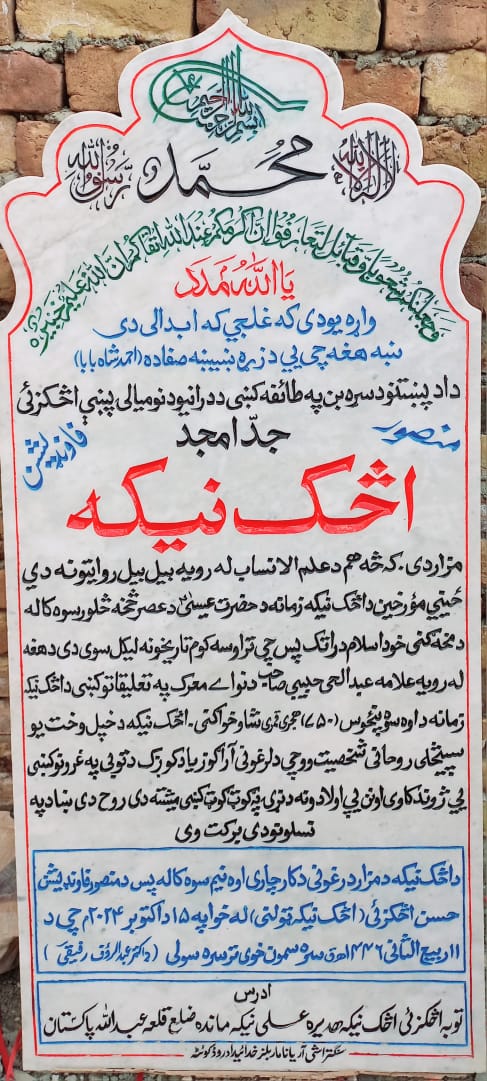 بسم الله الرحمن الرحيم
لا اله الا الله
محمد
رسول الله
وجعلنكم شعوبا وقبائل لتعارفوا ان اكرمكم عند الله اتقاكم ان الله عليم خبير
يا الله مدد
واړه يو دی که غلجي که ابدالی دی
ښه هغه چې يې د زړه ښيښه صفا ده (احمد شاه بابا)
داد پښتنو د سړه بن په طائفه کښی د درانيو د نوميالی پښې اڅکزئی
جدّ امجد
منصور
فاونډیشن
اڅک نيکه
مزار دی. که څه هم د علم الانساب له رويه بيل بيل روايتونه دي
ځينې مؤرخين د اڅک نيکه زمانه د حضرت عیسیٰ د عصر څخه څلور سوه کاله
د مخه ګڼی خو د اسلام د راتګ پس چې تر اوسه کوم تاريخونه ليکل سوی دی د هغه
له رويه علامه عبدالحی حبیبی صاحب د نوا ے معرک په تعليقاتو کښې د اڅک نيکه
زمانه د اوه سوه پنځوس (۷۵۰) هجری قمری شاوخوا ګڼی. اڅک نيکه د خپل وخت يو
سپيڅلی روحانی شخصيت وو چې د لرغونی اراکوزيا د کوږک د توبی په غرونو کښې
يې ژوند کاوی اوس يې اولادونه د نړۍ په ګوټ ګوټ کښې ميشته دی روح دی ښاد په
نسلونو دی برکت وی
د اڅک نيکه د مزار د رغونی د کار چاری اوه نيم سوه کاله پس د منصور فاونډيشن
حسن اڅکزئی (اڅک نيکه ټولنی) له خوا په ۱۵ د اکتوبر ۲۰۲۴م چې د
۱۱ ربيع الثانی ۱۴۴۶هق سره سمون خوری تر سره سولی (ډاکټر عبدالرؤف رفیقی)
ادرس
توبه اڅکزئی اڅک نيکه هديره علی نيکه مانده ضلع قلعه عبدالله پاکستان
سنگتراشی آریانا ماربلز خدائیداد روڈ کوئٹہ